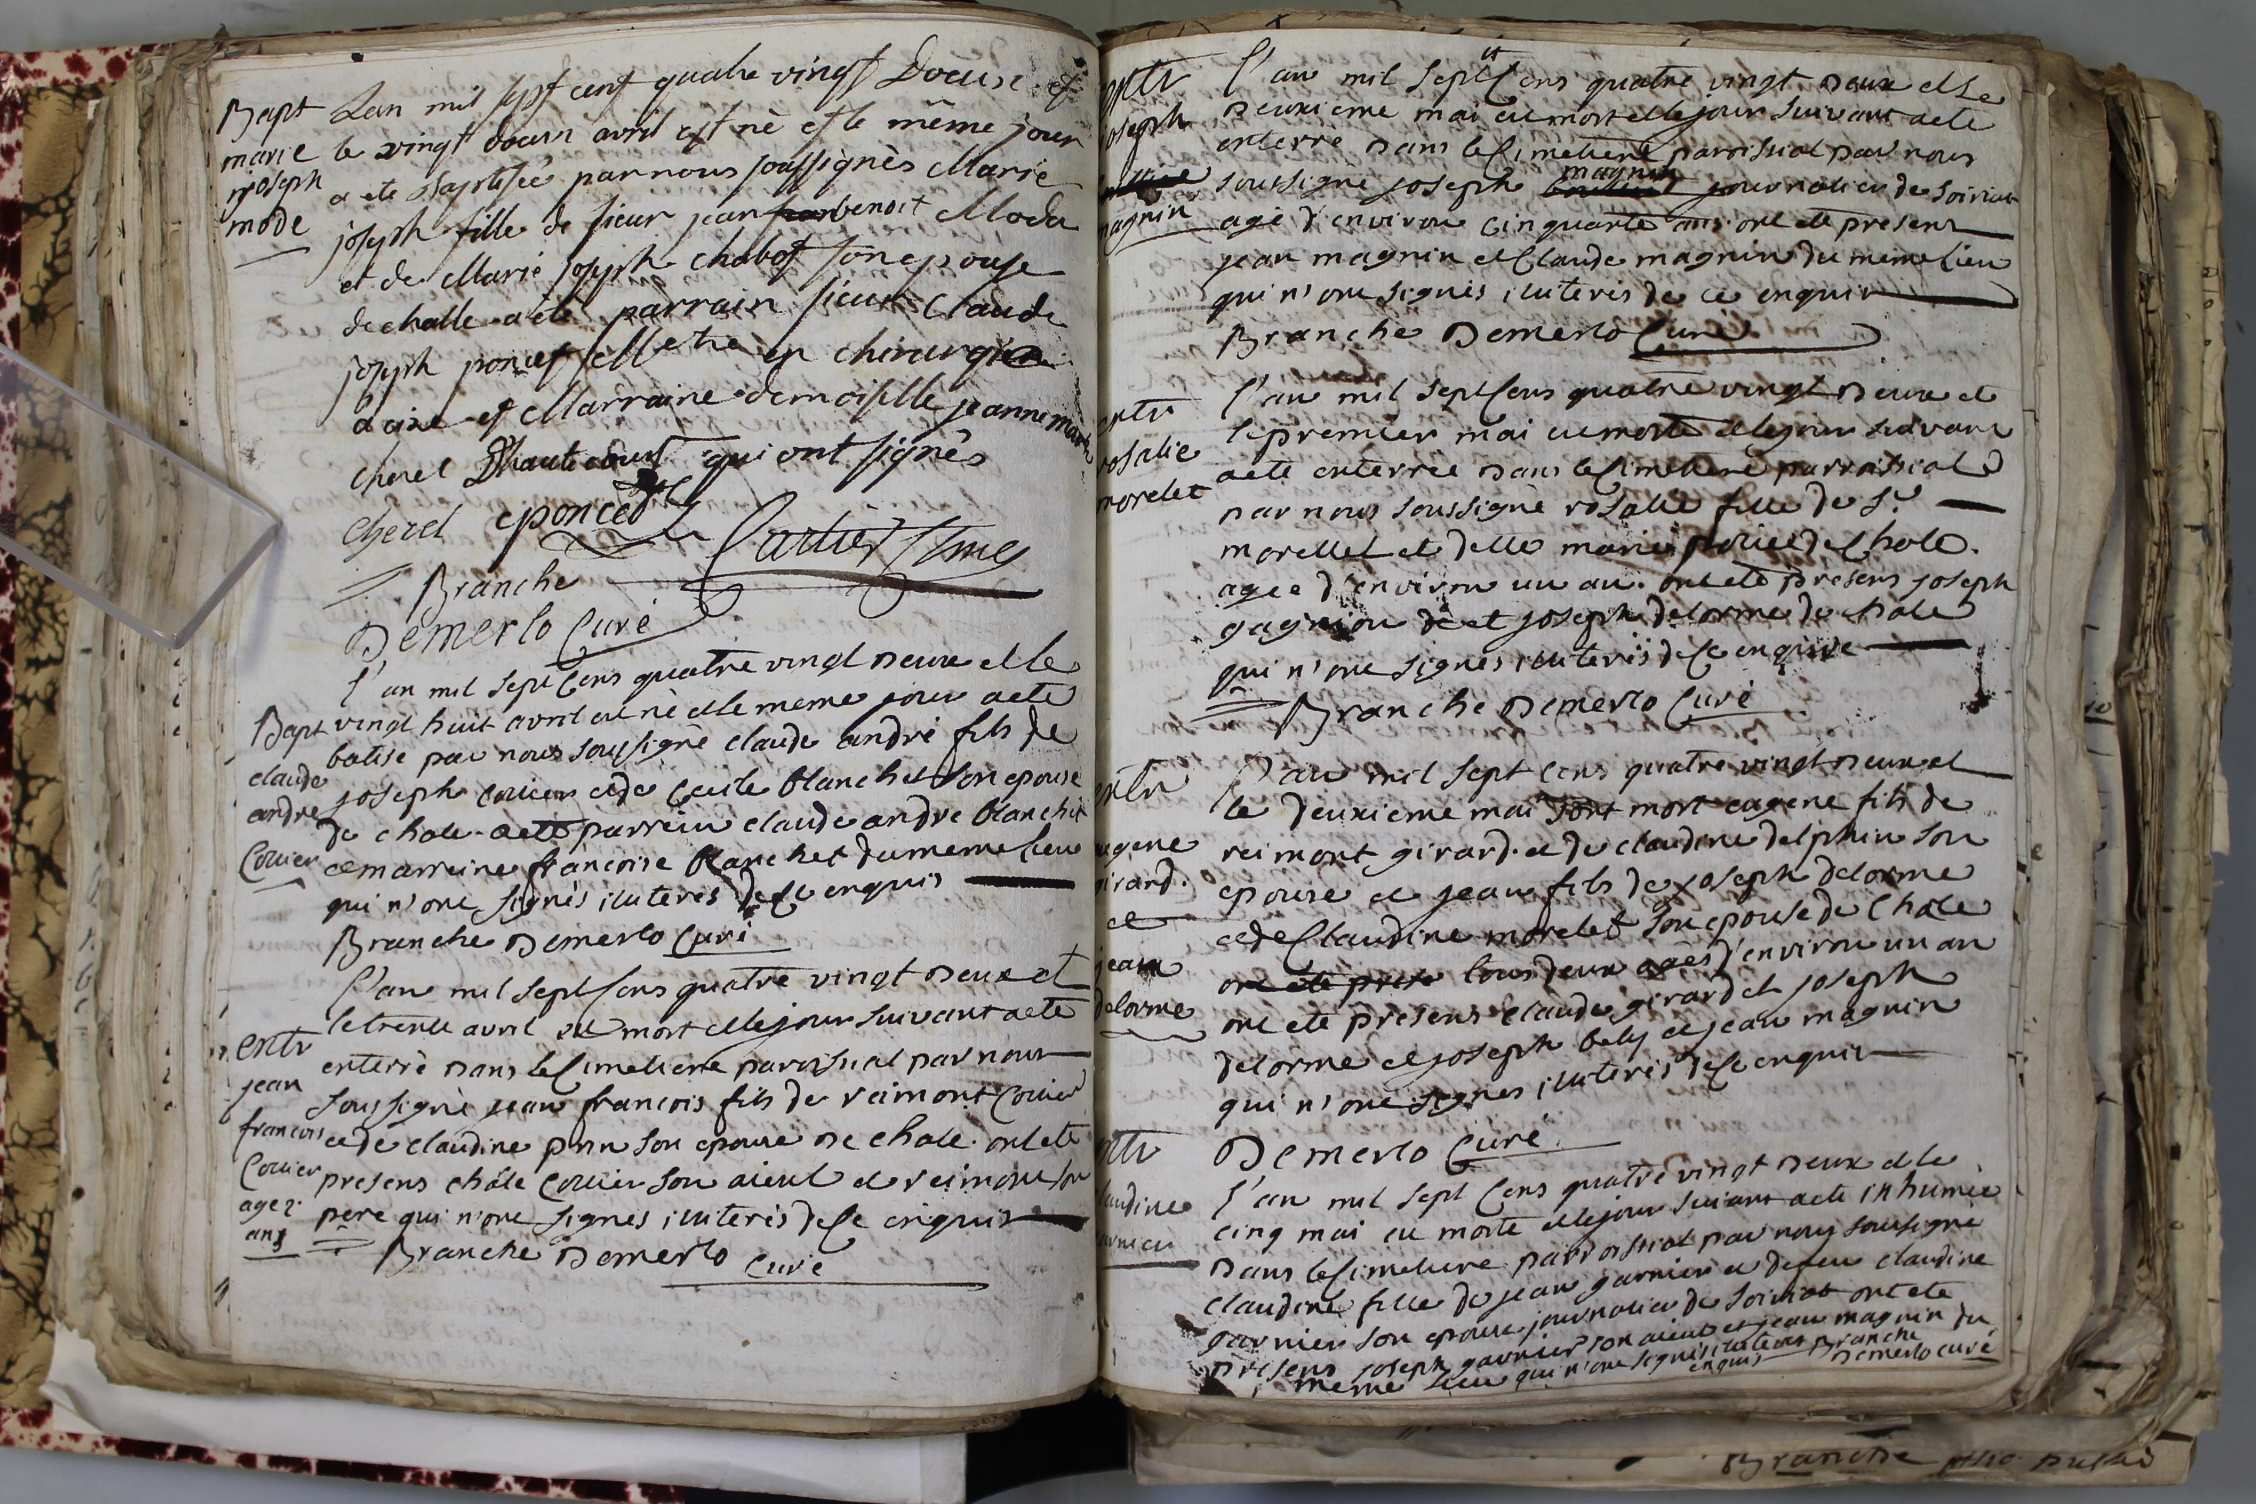 Bapt
marie
joseph
mode
Lan mil sept cent quatre vingt Deux et
le vingt deux avril est né et le même jour
a ete Baptisée par nous soussignés Marie
joseph fille de sieur jean benoit Moda
et de Marie joseph chabot son epouse
de challe a été parrain sieur Claude
joseph poncet Metre en chirurgie
a et Marraine demoiselle jeanne marie
cherel D'hautecourt qui ont signés
cherel cponcet
Branche
Demerlo Curé
Bapt
claude
andre
Couier
l'an mil sept Cens quatre vingt deux et le
vingt huit avril est né et le meme jour a ete
batisé par nous soussigné claude andré fils de
joseph couier et de Cecile blanchet son epouse
de chale a ete parrein claude andre blanchet
et marreine francoise blanchet du meme lieu
qui n'ont signés illiteres de ce enquis
Branche Demerlo Curé
entr
jean
francois
Couier
age 2
ans
l'an mil sept Cens quatre vingt deux et
le trente avril est mort et le jour suivant a ete
enterré dans le Cimetiere paroissial par nous
soussigné jean francois fils de reimont Couier
et de claudine son epouse de chale ont ete
presens chale Couier son aieul et reimont son
pere qui n'ont signés illiteris de ce enquis
Branche Demerlo
Curé
entr
joseph
magnin
l'an mil sept Cens quatre vingt deux et le
deuxieme mai est mort et le jour suivant a ete
enterré dans le Cimetiere paroissial par nous
soussigné joseph magnin journalier de soiriat
agé d'environ Cinquante ans ont ete presens
jean magnin et Claude magnin du meme lieu
qui n'ont signés illiteris de ce enquis
Branche Demerlo Curé
entr
rosalie
morelet
l'an mil sept Cens quatre vingt deux et
le premier mai est morte et le jour suivant
a ete enterrée dans le Cimetiere parroissial
par nous soussigné rosalie fille de Sr
morellet et delle marie de Chale
agée d'environ un an ont ete presens joseph
gagnion et joseph delorme de chale
qui n'ont signés illiteris de ce enquis
Branche Demerlo Curé
entr
eugene
girard
et
jean
delorme
l'an mil sept Cens quatre vingt deux et
le deuxieme mai sont mort eugene fils de
reimont girard et de claudine delphin son
epouse et jean fils de joseph delorme
et de Claudine morelet son epouse de Chale
ont ete prese tous deux agés d'environ un an
ont ete presens claude girard et joseph
delorme et joseph bely et jean magnin
qui n'ont signés illiteris de ce enquis
Demerlo Curé
entr
claudine
garnier
l'an mil sept Cens quatre vingt deux et le
cinq mai est morte et le jour suivant a ete inhumée
dans le Cimetiere parroissial par nous soussigné
claudine fille de jean garnier et de feu claudine
garnier son epouse journalier de soiriat ont ete
presens joseph garnier son aieul et jean magnin du
meme lieu qui n'ont signés illiteris Branche
enquis Demerlo curé
Branche